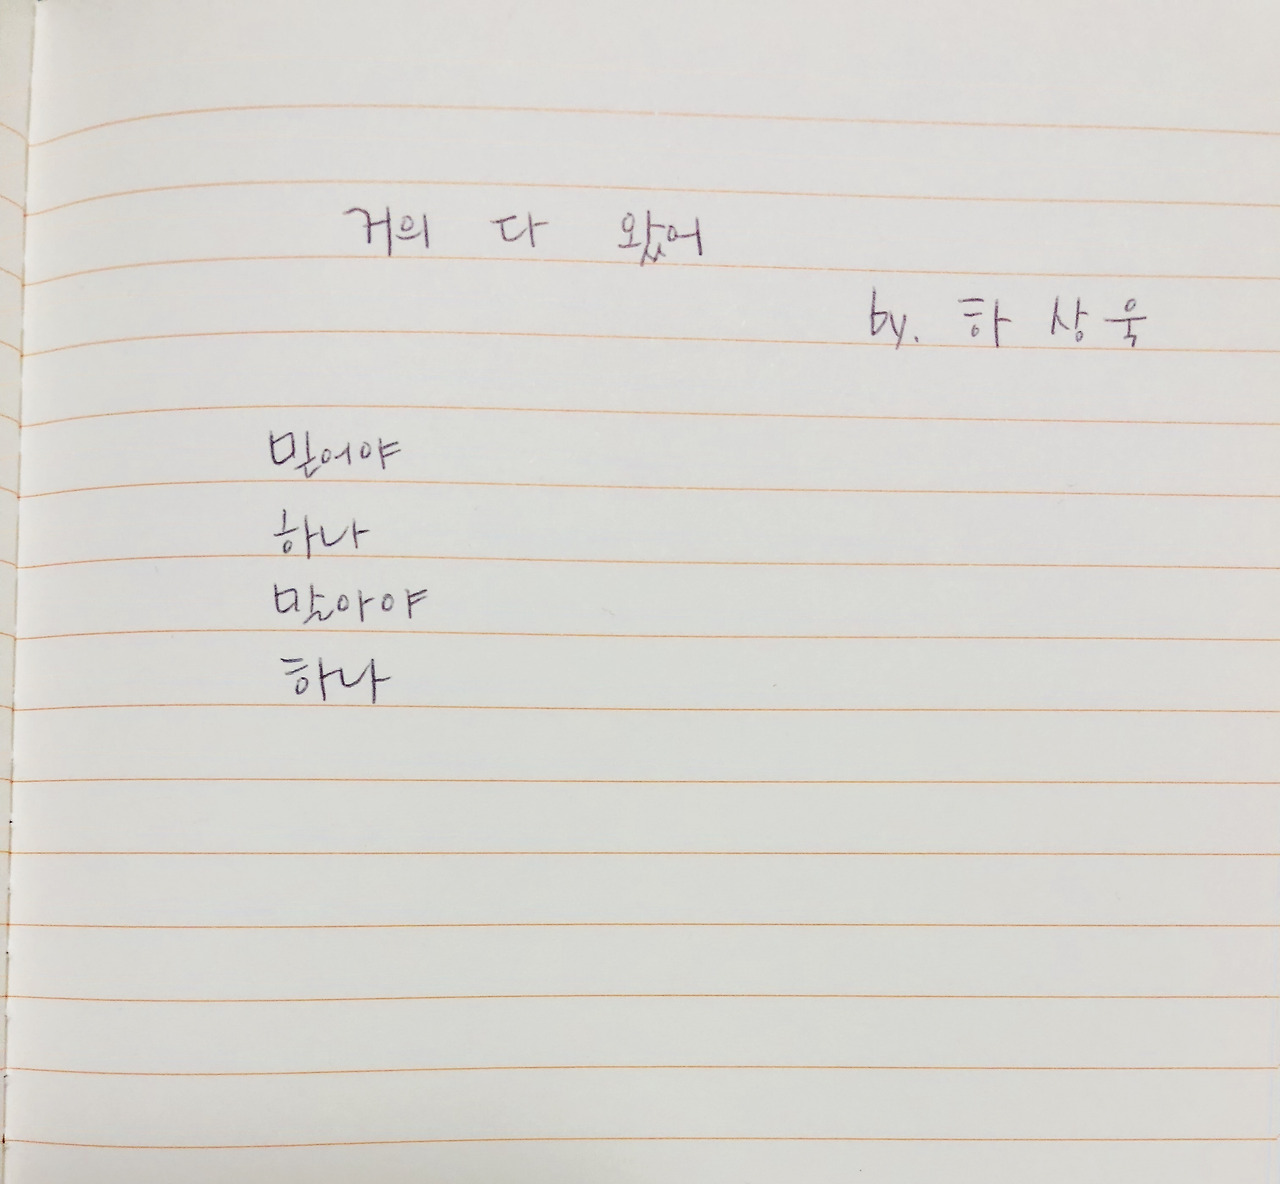 거의 다 왔어
by. 하상욱
믿어야
하나
말아야
하나